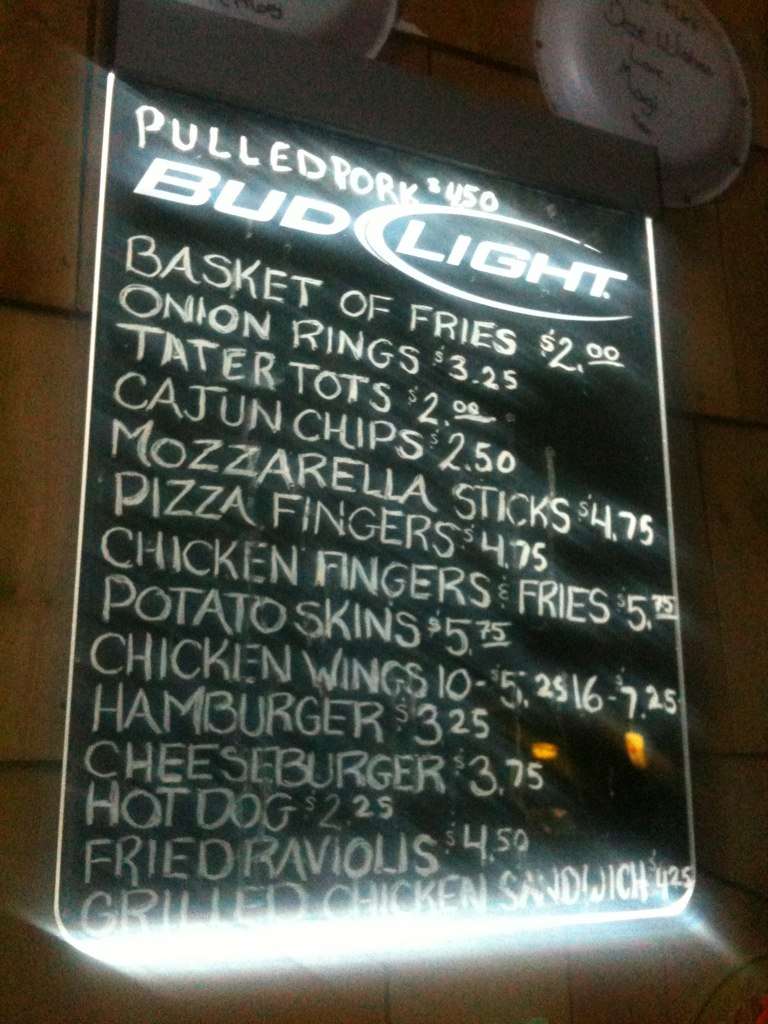 Dave
Love
PULLED PORK $450
BUD LIGHT
BASKET OF FRIES $2.00
ONION RINGS $3.25
TATER TOTS $2.00
CAJUN CHIPS $2.50
MOZZARELLA STICKS $4.75
PIZZA FINGERS $4.75
CHICKEN FINGERS & FRIES $5.75
POTATO SKINS $5.75
CHICKEN WINGS 10-$5.25 16-$7.25
HAMBURGER $3.25
CHEESEBURGER $3.75
HOT DOG $2.25
FRIED RAVIOLIS $4.50
GRILLED CHICKEN SANDWICH $425